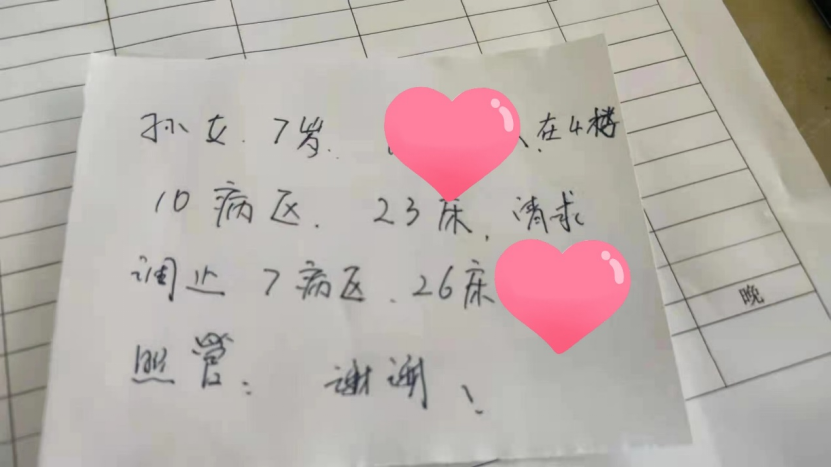 孙女.7岁. 在4楼
10病区.23床,请求
调至7病区.26床
照管. 谢谢!
晚